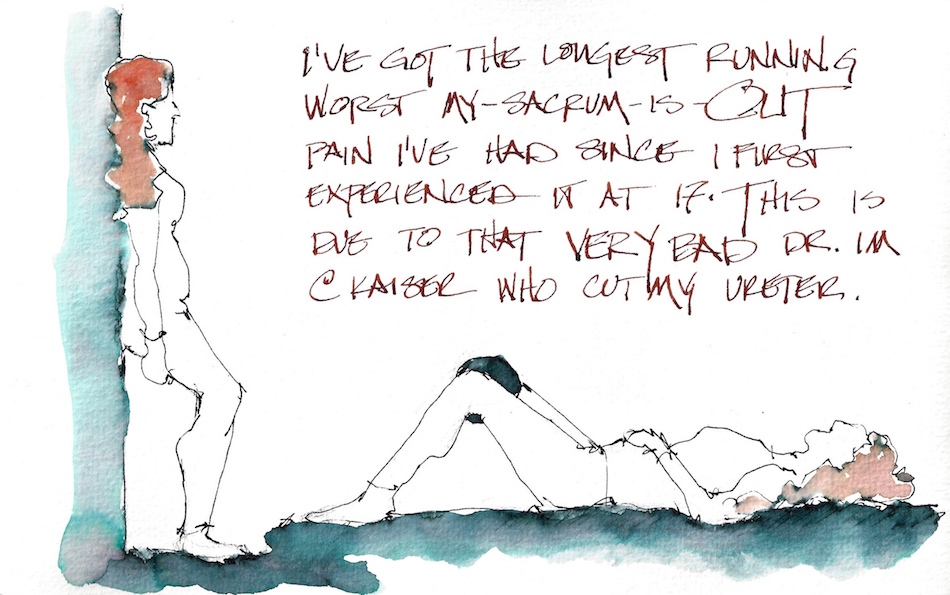 I'VE GOT THE LONGEST RUNNING
WORST MY-SACRUM-IS-OUT
PAIN I'VE HAD SINCE I FIRST
EXPERIENCED IT AT 17. THIS IS
DUE TO THAT VERY BAD DR. IM
@ KAISER WHO CUT MY URETER.